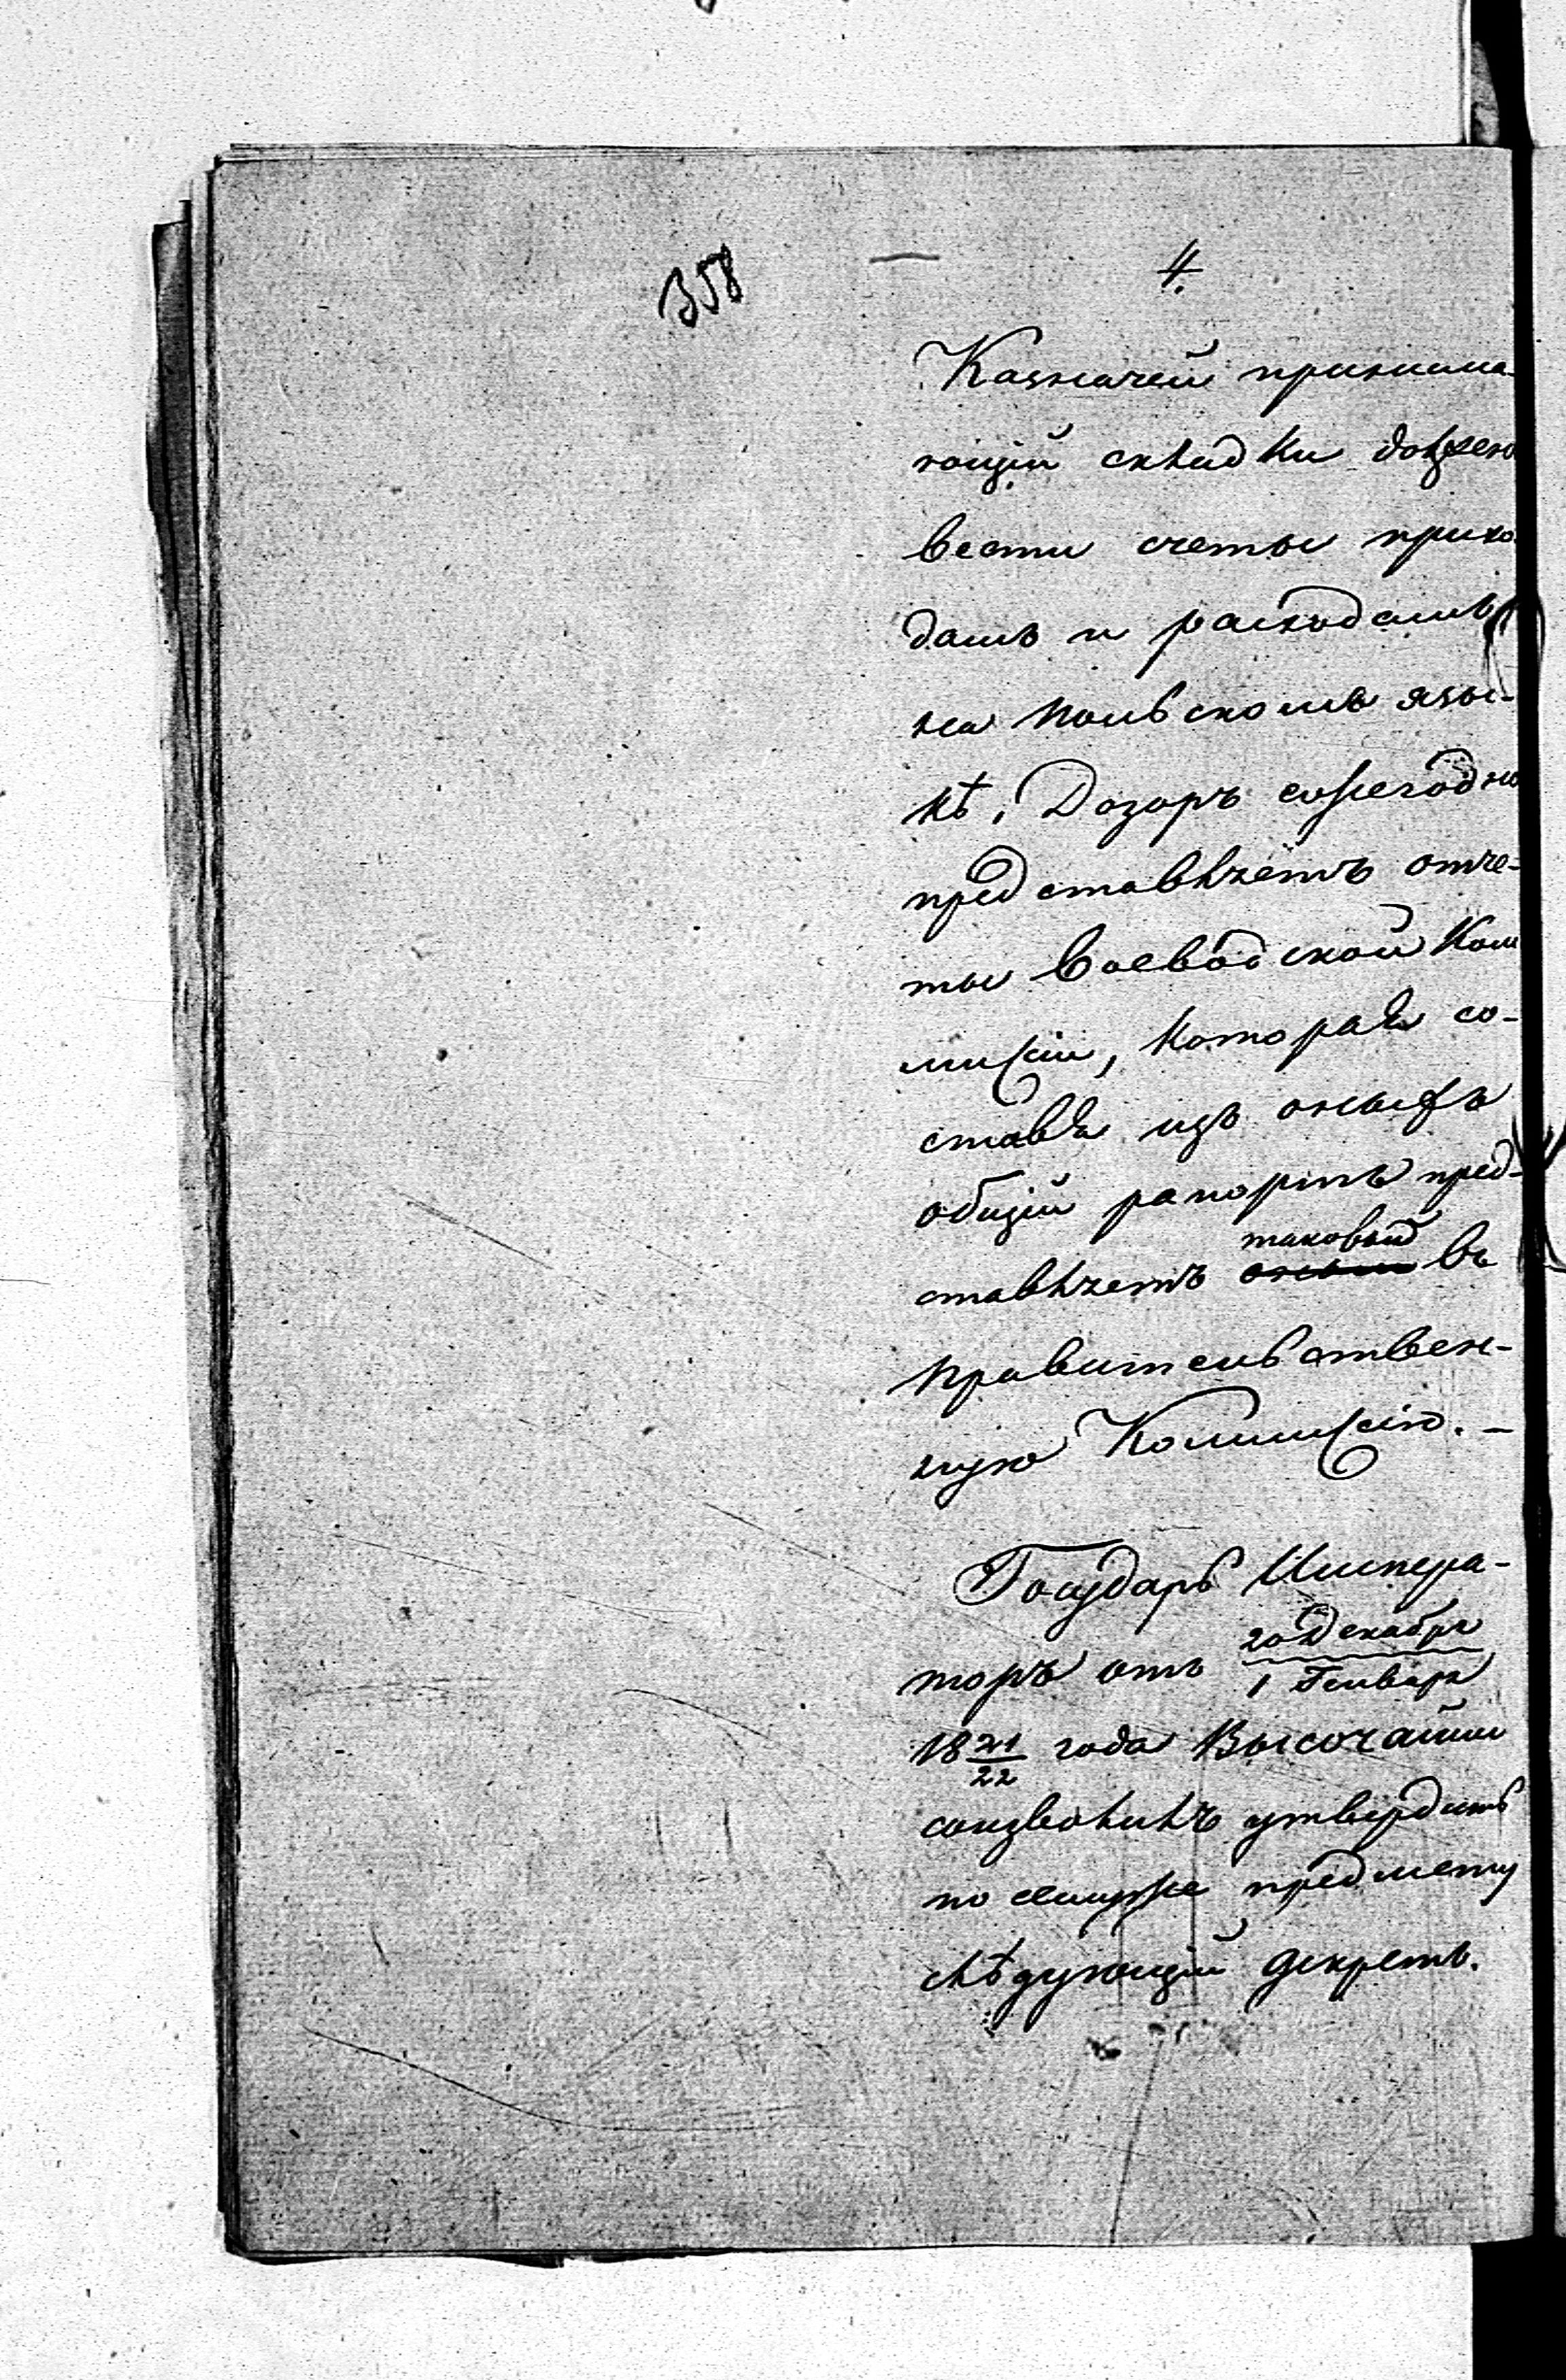 358
4.
Казначей принима-
ющій складки должен
вести счеты прихо-
дамъ и расходамъ
на польскомъ язы-
кѣ. Дозоръ сожегодно
представляетъ отче-
ты Воеводской Ком
мисіи, которая со-
ставя изъ оныхъ
общій рапортъ пред-
таковый
ставляетъ оный въ
Правительствен-
ную Коммисію. -
Государь Импера-
торъ отъ 20 Декабря
1 Генваря
18 21/22 года Высочайше
соизволилъ утвердить
по сему же предмету
слѣдующій декретъ.